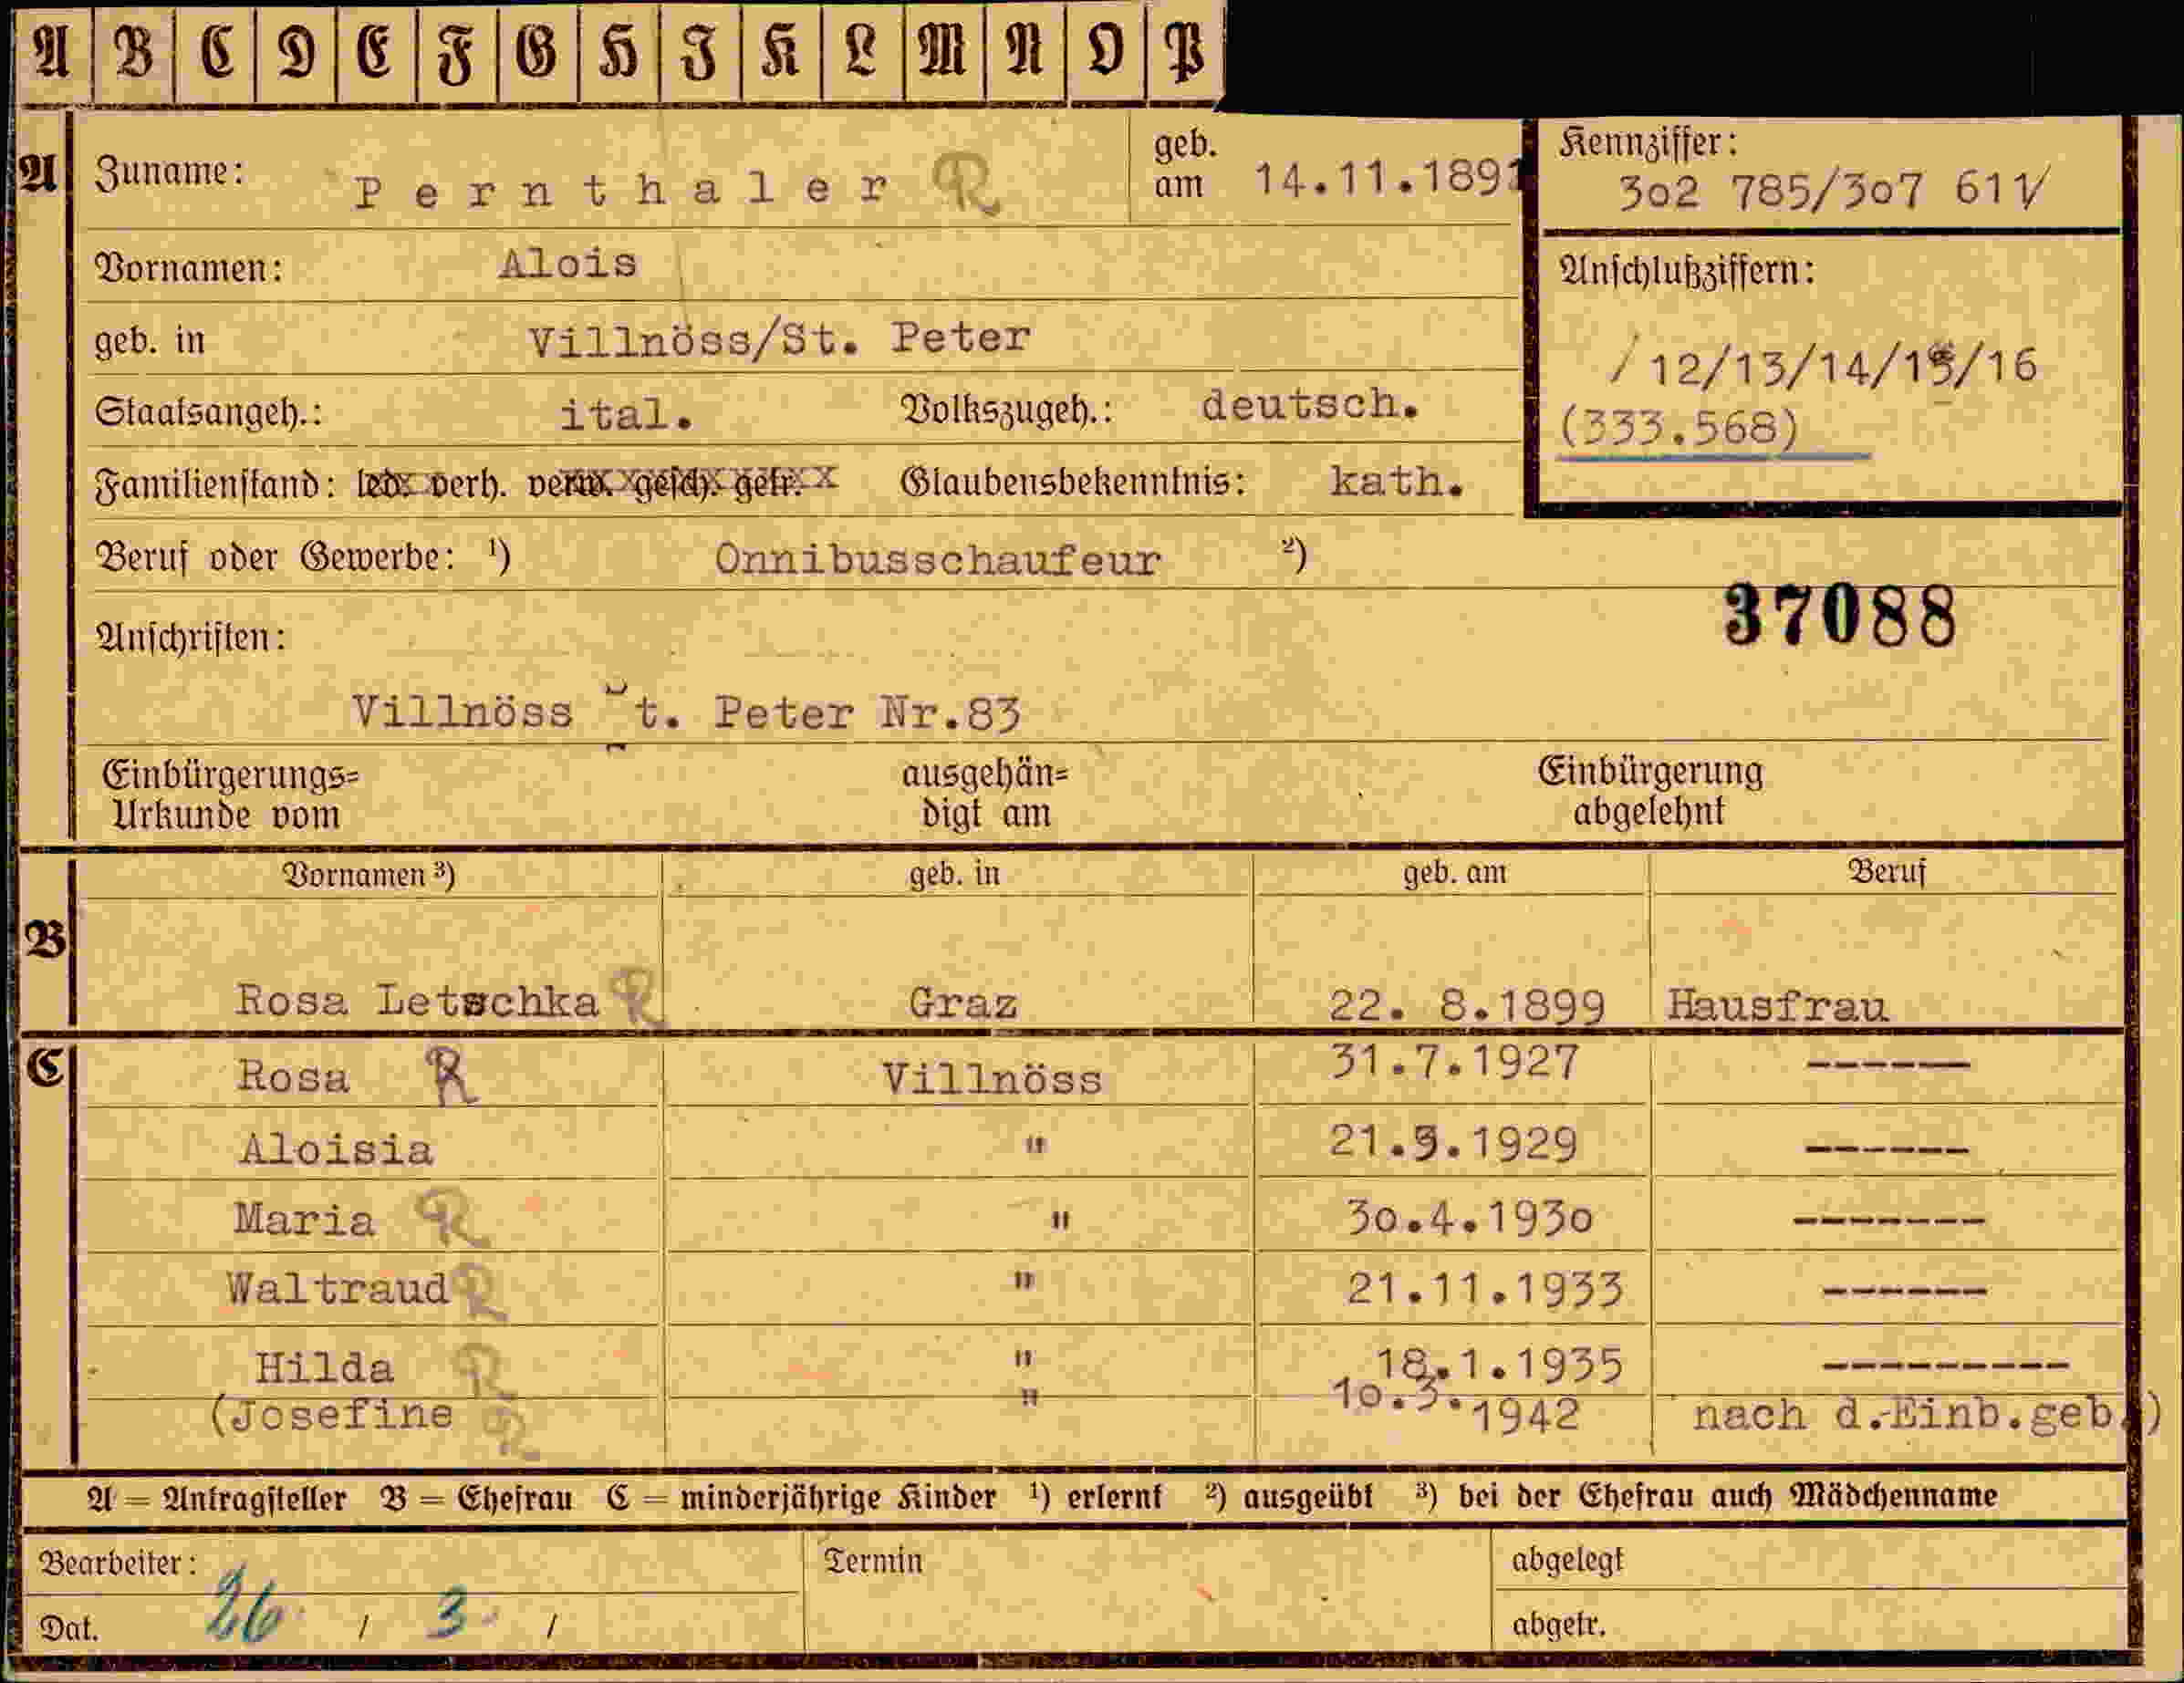 A B C D E F G H J K L M N O P
A Zuname: Pernthaler R geb. am 14.11.1891
Kennziffer:
302 785/307 611/
Vornamen: Alois
Anschlußziffern:
geb. in Villnöss/St. Peter
/12/13/14/15/16
Staatsangeh.: ital. Volkszugeh.: deutsch.
(333.568)
Familienstand: led. verh. verw. gesch. getr. Glaubensbekenntnis: kath.
Beruf oder Gewerbe: ¹) Onnibusschaufeur ²)
37088
Anschriften:
Villnöss St. Peter Nr.83
Einbürgerungs= ausgehän= Einbürgerung
Urkunde vom digt am abgelehnt
Vornamen ³) geb. in geb. am Beruf
B
Rosa Letschka R Graz 22. 8.1899 Hausfrau
C Rosa R Villnöss 31.7.1927 ------
Aloisia " 21.3.1929 ------
Maria R " 30.4.1930 -------
Waltraud R " 21.11.1933 ------
Hilda R " 18.1.1935 ---------
(Josefine R " 10.3.1942 nach d.-Einb.geb.)
A = Antragsteller B = Ehefrau C = minderjährige Kinder ¹) erlernt ²) ausgeübt ³) bei der Ehefrau auch Mädchenname
Bearbeiter: Termin abgelegt
Dat. 26 / 3 / abgetr.